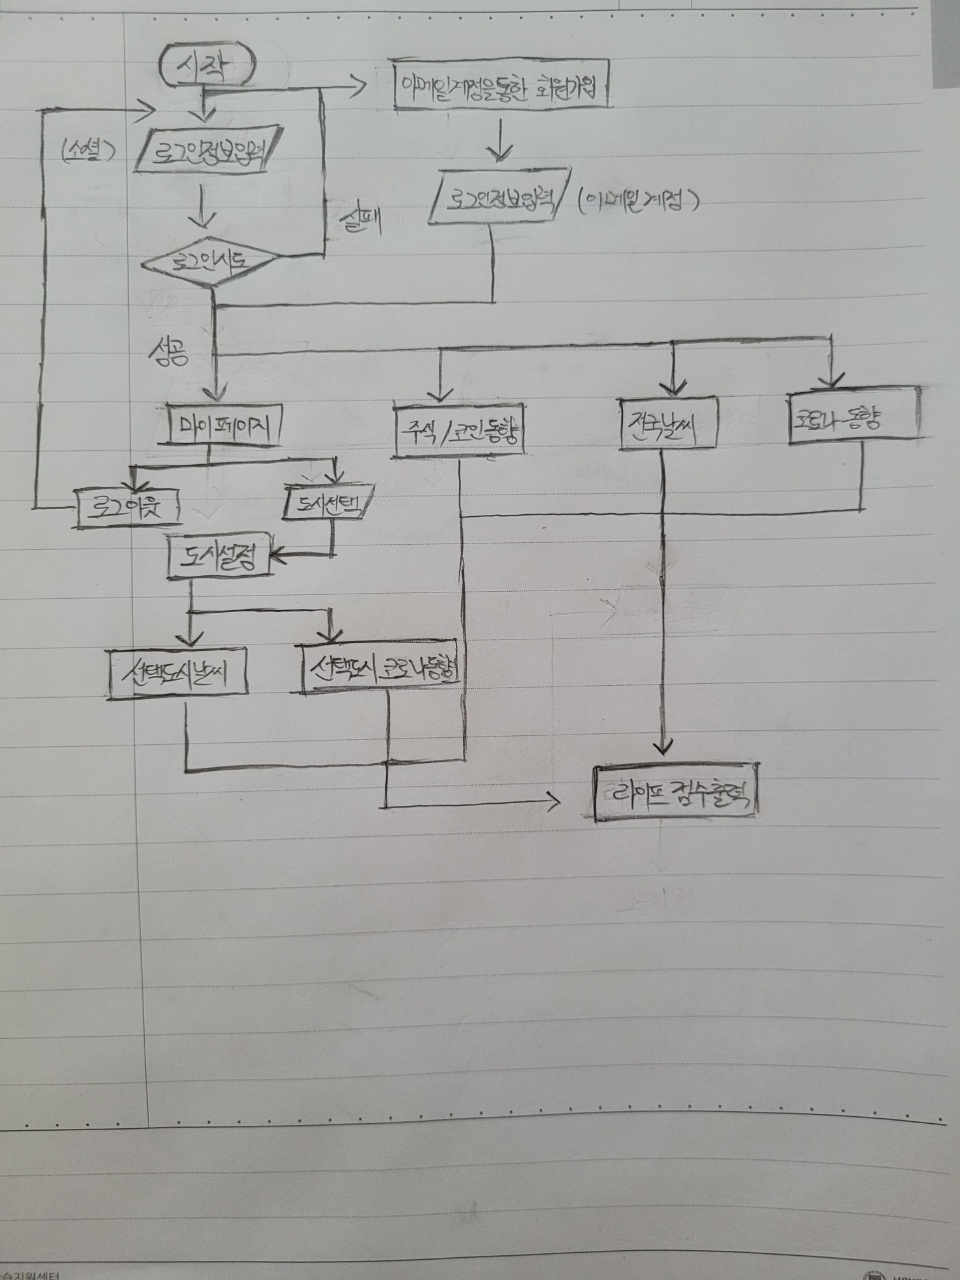 시작
이메일계정을통한 회원가입
(소셜)
로그인정보입력
로그인정보입력
(이메일계정)
실패
로그인시도
성공
마이페이지
주식/코인동향
전국날씨
코로나 동향
로그아웃
도시선택
도시설정
선택도시날씨
선택도시 코로나동향
라이프 점수출력